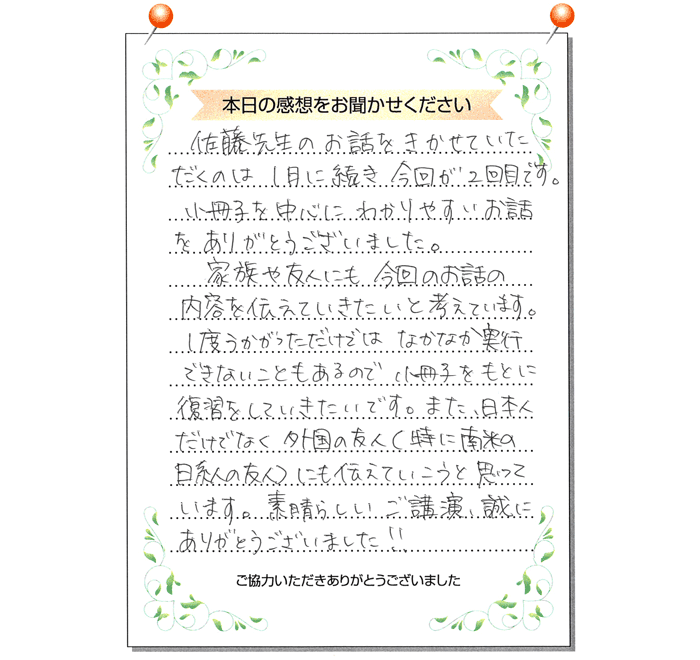 本日の感想をお聞かせください
佐藤先生のお話をきかせていた
だくのは1月に続き今回が2回目です。
小冊子を中心にわかりやすいお話
をありがとうございました。
家族や友人にも今回のお話の
内容を伝えていきたいと考えています。
1度うかがっただけではなかなか実行
できないこともあるので小冊子をもとに
復習をしていきたいです。また、日本人
だけでなく外国の友人(特に南米の
日系人の友人)にも伝えていこうと思って
います。素晴らしいご講演、誠に
ありがとうございました!!
ご協力いただきありがとうございました